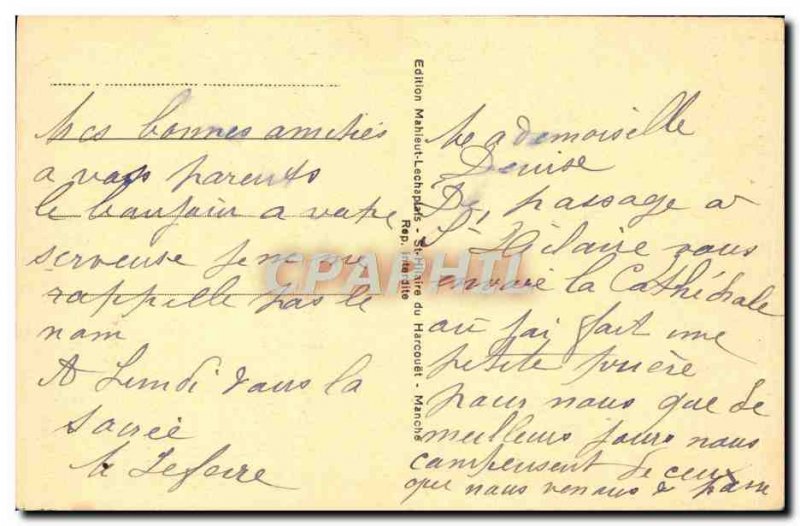 Mademoiselle
Denise
De passage a
St Hilaire vous
envoie la Cathédrale
ou j'ai fait une
petite prière
pour nous que de
meilleurs jours nous
compensent de ceux
que nous venons de passe
Mes bonnes amitiés
a vos parents
le bonjour a votre
serveuse je ne me
rappelle pas le
nom
A Lundi dans la
soirée
Edition Mahieut-Lechaplais - St-Hilaire du Harcouët - Manche
Rep. Interdite
CPAPHIL